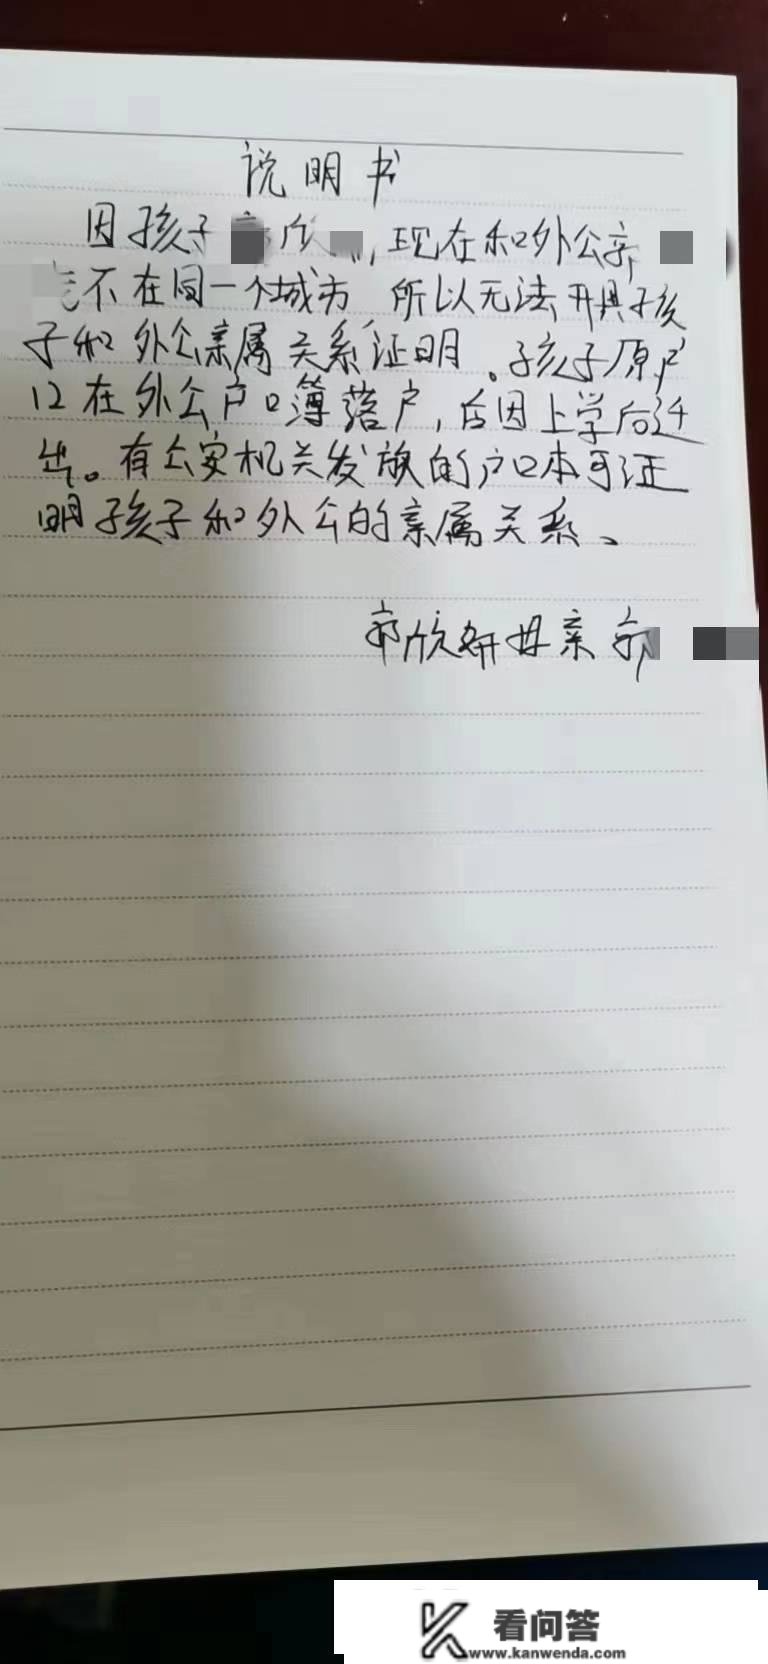 说明书
因孩子 欣 现在和外公郭
不在同一个城市 所以无法开具孩
子和外公亲属关系证明。孩子原户
口在外公户口簿落户,后因上学后迁
出。有公安机关发放的户口本可证
明孩子和外公的亲属关系、
郭欣妍母亲郭
看问答
www.kanwenda.com